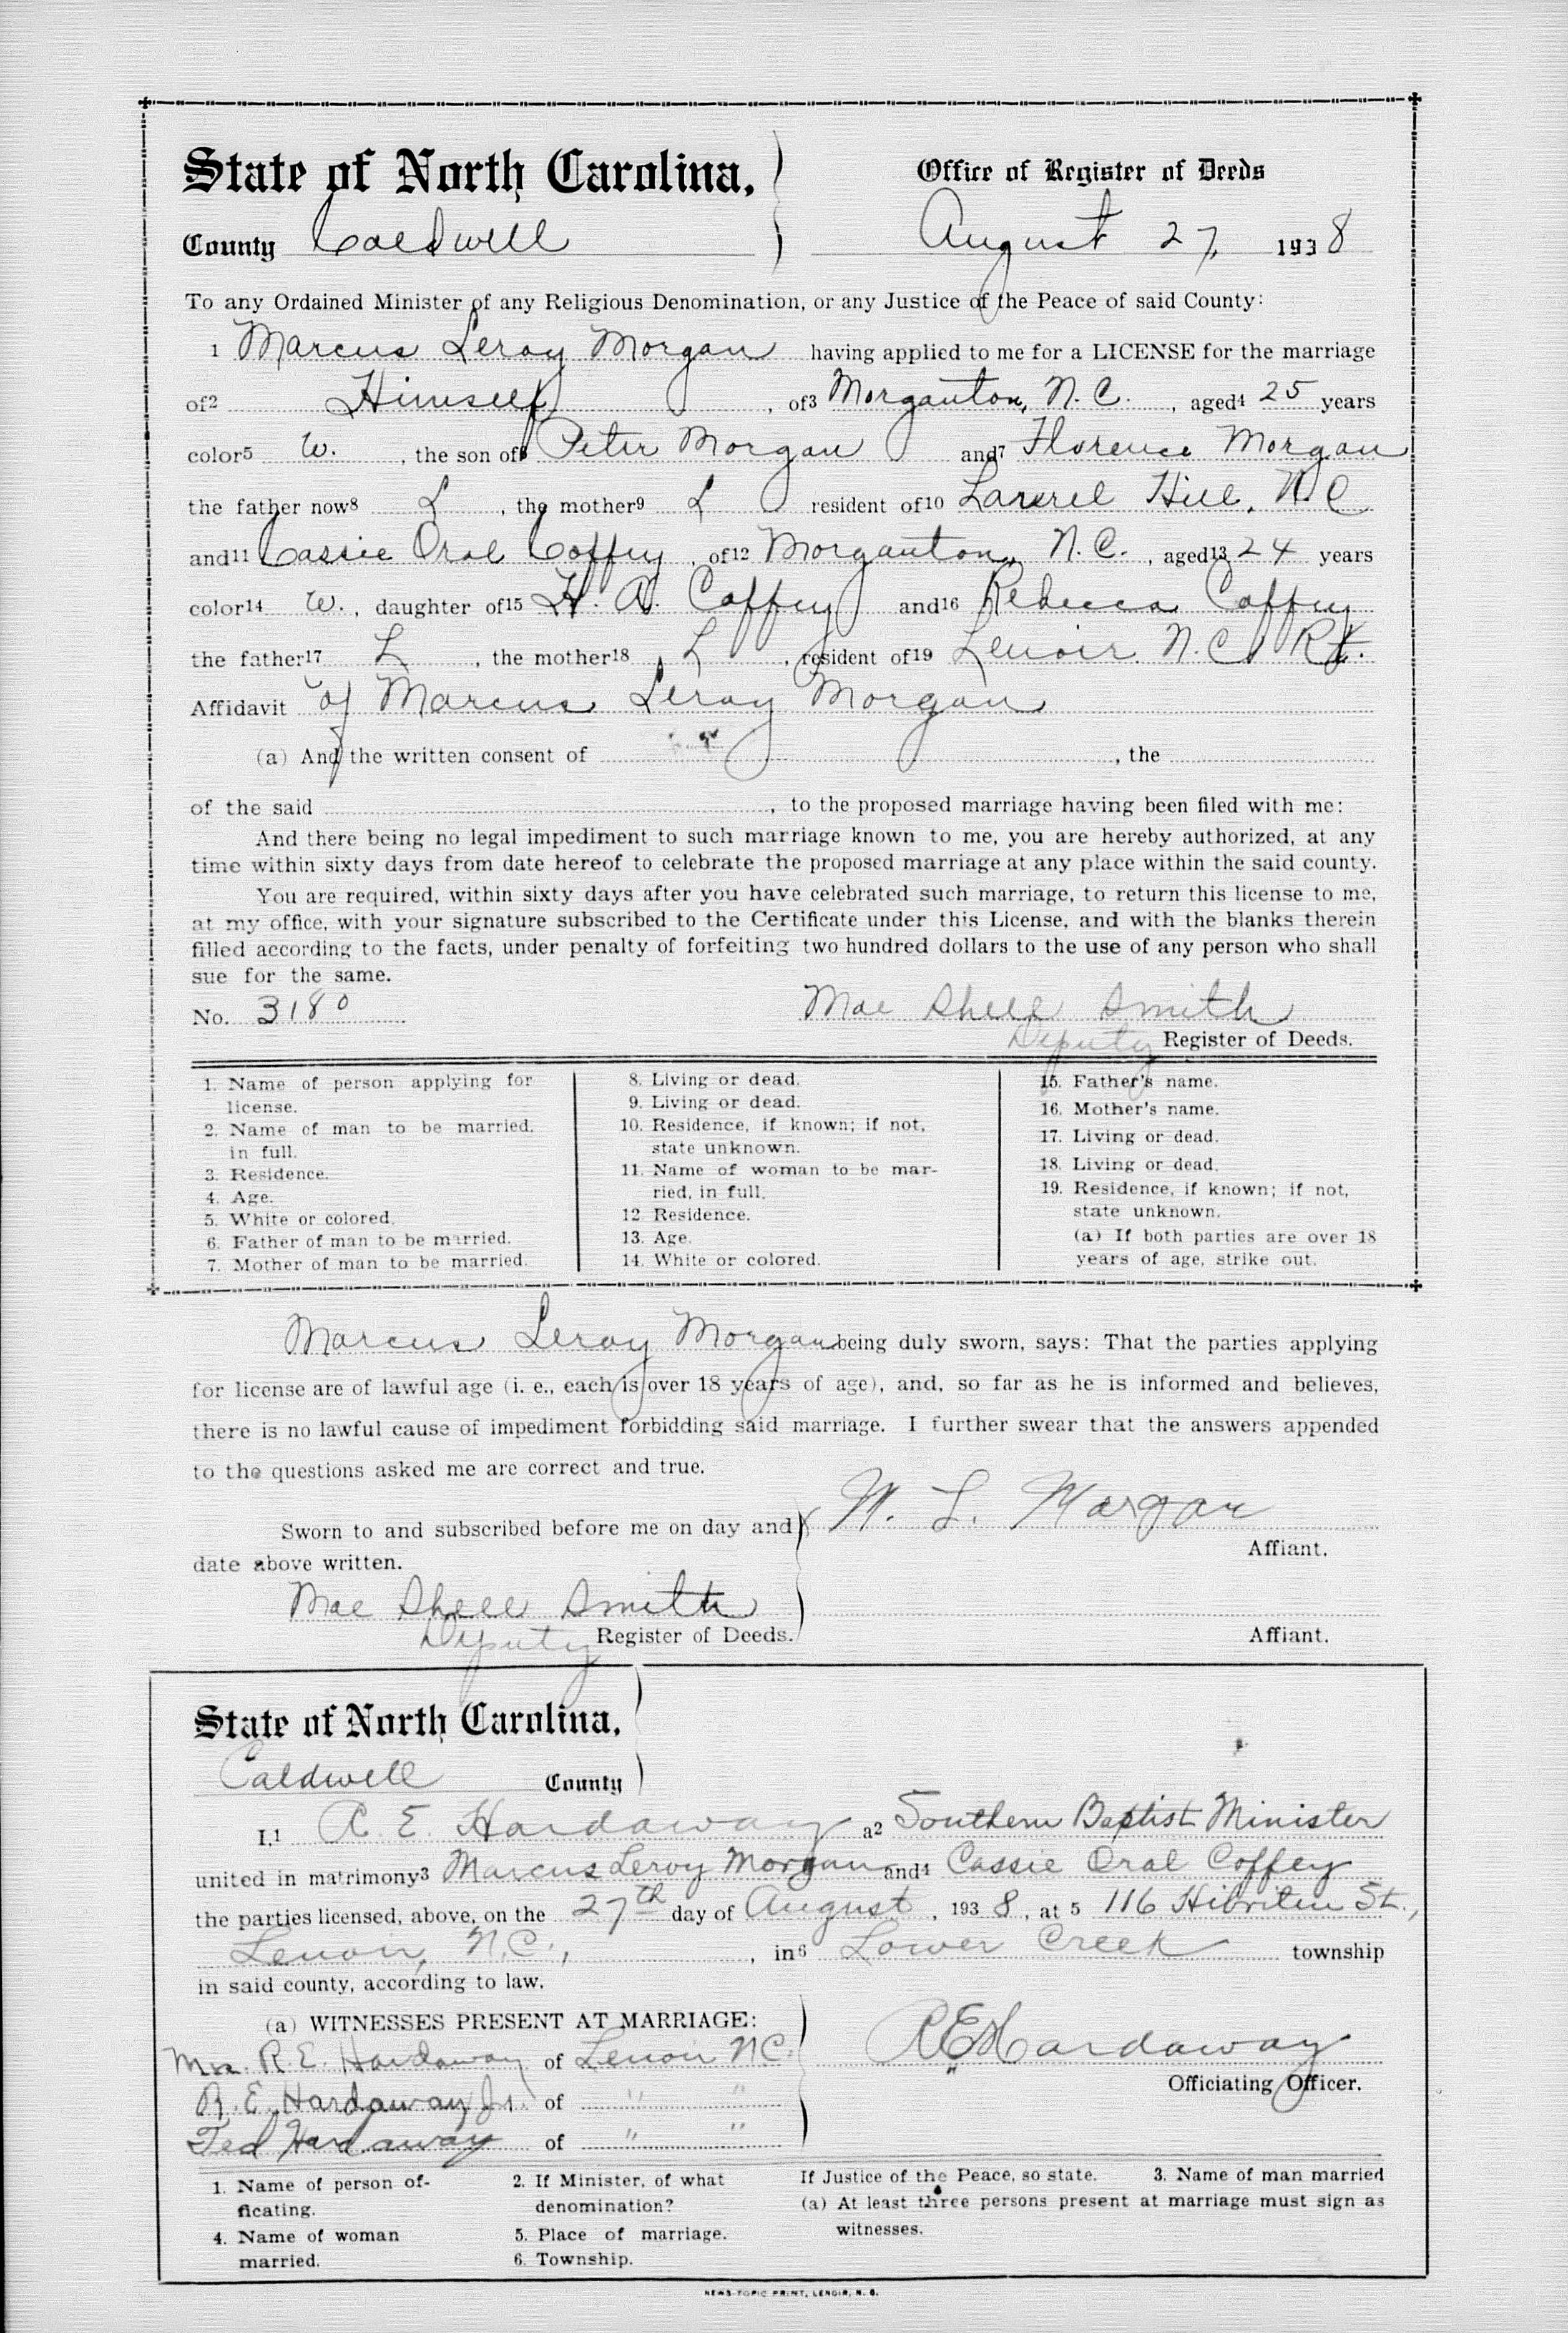 State of North Carolina,
County Caldwell
Office of Register of Deeds
August 27, 1938
To any Ordained Minister of any Religious Denomination, or any Justice of the Peace of said County:
1 Marcus Leroy Morgan having applied to me for a LICENSE for the marriage
of2 Himself, of3 Morganton, N.C., aged4 25 years
color5 W., the son of6 Peter Morgan and7 Florence Morgan
the father now8 L, the mother9 L resident of10 Laurel Hill, N.C
and11 Cassie Oral Coffey, of12 Morganton, N.C., aged13 24 years
color14 W., daughter of15 H. A. Coffey and16 Rebecca Coffey
the father17 L, the mother18 L, resident of19 Lenoir, N.C. Rt.
Affidavit of Marcus Leroy Morgan
(a) And the written consent of , the
of the said , to the proposed marriage having been filed with me:
And there being no legal impediment to such marriage known to me, you are hereby authorized, at any
time within sixty days from date hereof to celebrate the proposed marriage at any place within the said county.
You are required, within sixty days after you have celebrated such marriage, to return this license to me,
at my office, with your signature subscribed to the Certificate under this License, and with the blanks therein
filled according to the facts, under penalty of forfeiting two hundred dollars to the use of any person who shall
sue for the same.
No. 3180 Mae Shell Smith
Deputy Register of Deeds.
1. Name of person applying for
license.
2. Name of man to be married,
in full.
3. Residence.
4. Age.
5. White or colored.
6. Father of man to be married.
7. Mother of man to be married.
8. Living or dead.
9. Living or dead.
10. Residence, if known; if not,
state unknown.
11. Name of woman to be mar-
ried, in full.
12. Residence.
13. Age.
14. White or colored.
15. Father's name.
16. Mother's name.
17. Living or dead.
18. Living or dead.
19. Residence, if known; if not,
state unknown.
(a) If both parties are over 18
years of age, strike out.
Marcus Leroy Morgan being duly sworn, says: That the parties applying
for license are of lawful age (i. e., each is over 18 years of age), and, so far as he is informed and believes,
there is no lawful cause of impediment forbidding said marriage. I further swear that the answers appended
to the questions asked me are correct and true.
Sworn to and subscribed before me on day and
date above written.
M. L. Morgan
Affiant.
Mae Shell Smith
Deputy Register of Deeds.
Affiant.
State of North Carolina,
Caldwell County
I,1 R. E. Hardaway a2 Southern Baptist Minister
united in matrimony3 Marcus Leroy Morgan and4 Cassie Oral Coffey
the parties licensed, above, on the 27th day of August, 1938, at 5 116 Hibriten St.,
Lenoir, N.C., , in6 Lower Creek township
in said county, according to law.
(a) WITNESSES PRESENT AT MARRIAGE:
Mrs. R.E. Hardaway of Lenoir N.C.
R. E. Hardaway Jr. of " "
Ted Hardaway of " "
R.E. Hardaway
Officiating Officer.
1. Name of person of-
ficating.
2. If Minister, of what
denomination?
If Justice of the Peace, so state.
3. Name of man married
(a) At least three persons present at marriage must sign as
witnesses.
4. Name of woman
married.
5. Place of marriage.
6. Township.
NEWS-TOPIC PRINT, LENOIR, N. C.